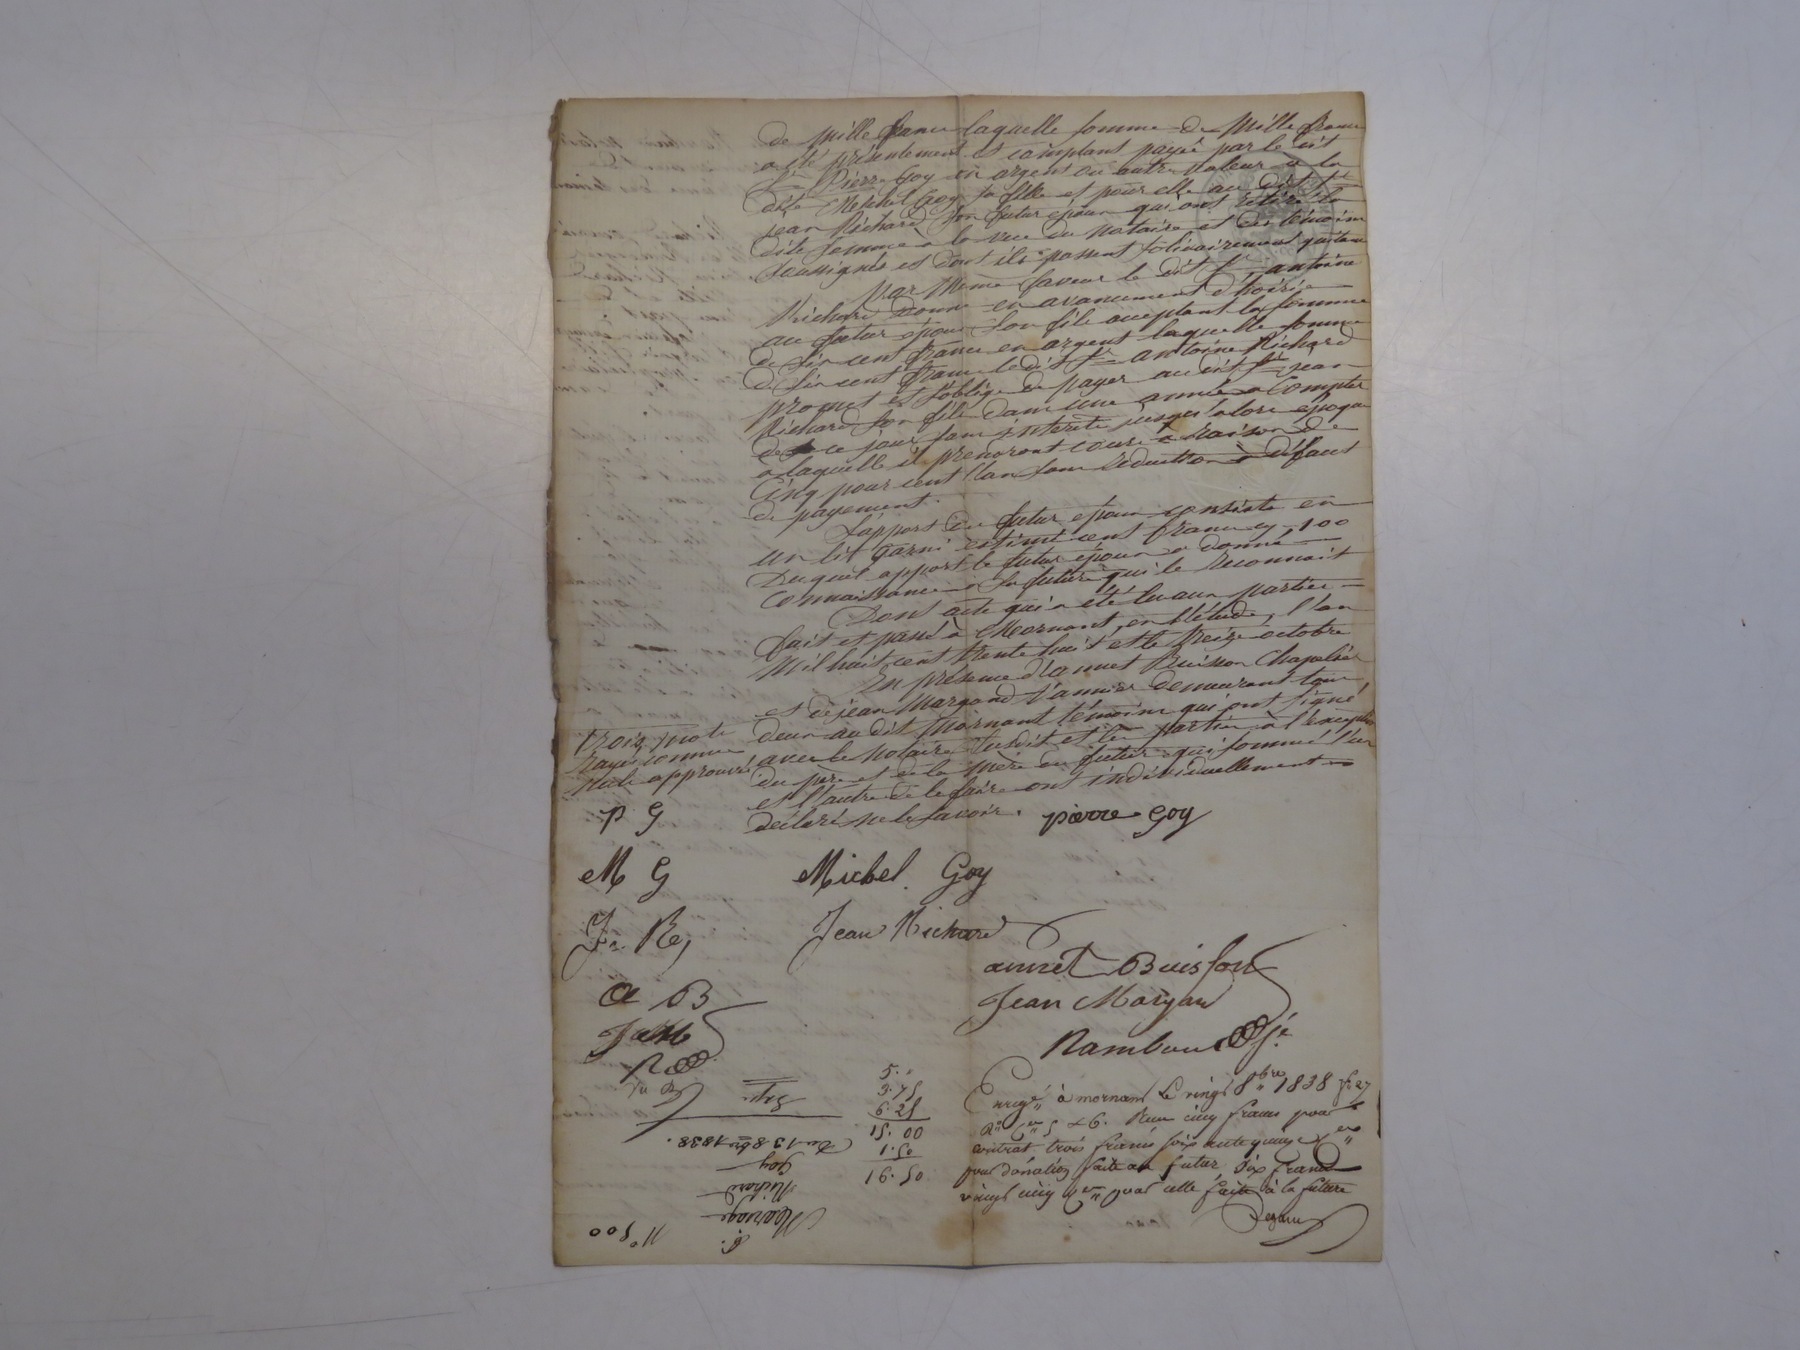 de Mille francs laquelle somme de Mille francs
a été présentement et comptant payée par le dit
Sr Pierre Goy en argent ou autre valeur à la
dite Michel Goy sa fille et pour elle au dit Sr
jean Richard son futur époux qui ont retiré la
dite somme à la vue du notaire et des témoins
soussignés et dont ils passent solidairement quittance
Par même faveur le dit Sr antoine
Richard donne en avancement d'hoirie
au futur époux son fils acceptant la somme
de six cent francs en argent laquelle somme
de six cent francs le dit Sr antoine Richard
promet et s'oblige de payer au dit Sr jean
Richard son fils dans une année à Compter
de ce jour sans intérêts jusqu'alors époque
à laquelle ils prendront cours à raison de
Cinq pour cent l'an sans réduction à défaut
de payement.
L'apport du futur époux consiste en
un lit garni estimé cent francs cy 100
Duquel apport le futur époux a donné
connaissance à sa future qui le reconnait
Dont acte qui a été lu aux parties
fait et passé à Mornant, en l'étude, l'an
Mil huit cent trente huit et le treize octobre
En présence d'annet Buisson Chapelier
et de jean Margand Vannier demeurant tous
deux au dit Mornant témoins qui ont signé
avec le Notaire susdit et les parties à l'exception
du père et de la mère du futur qui sommés l'un
et l'autre de le faire ont individuellement
déclaré ne le savoir.
trois mots
rayés comme
nuls approuvés
P G
pierre Goy
M G
Michel Goy
Jn R
Jean Richard
annet Buisson
A B
Jean Margand
R
5.
3.75
6.25
15.00
1.50
16.50
Enregé à mornant Le vingt 8bre 1838 fo 27
Ro Ces 5 & 6. Reçu cinq francs pour
contrat trois francs soixante quinze ces
pour donation faite au futur, six francs
vingt cinq ces pour celle faite à la future
No 500
Mariage
Richard
Goy
Du 13 8bre 1838.
Expé